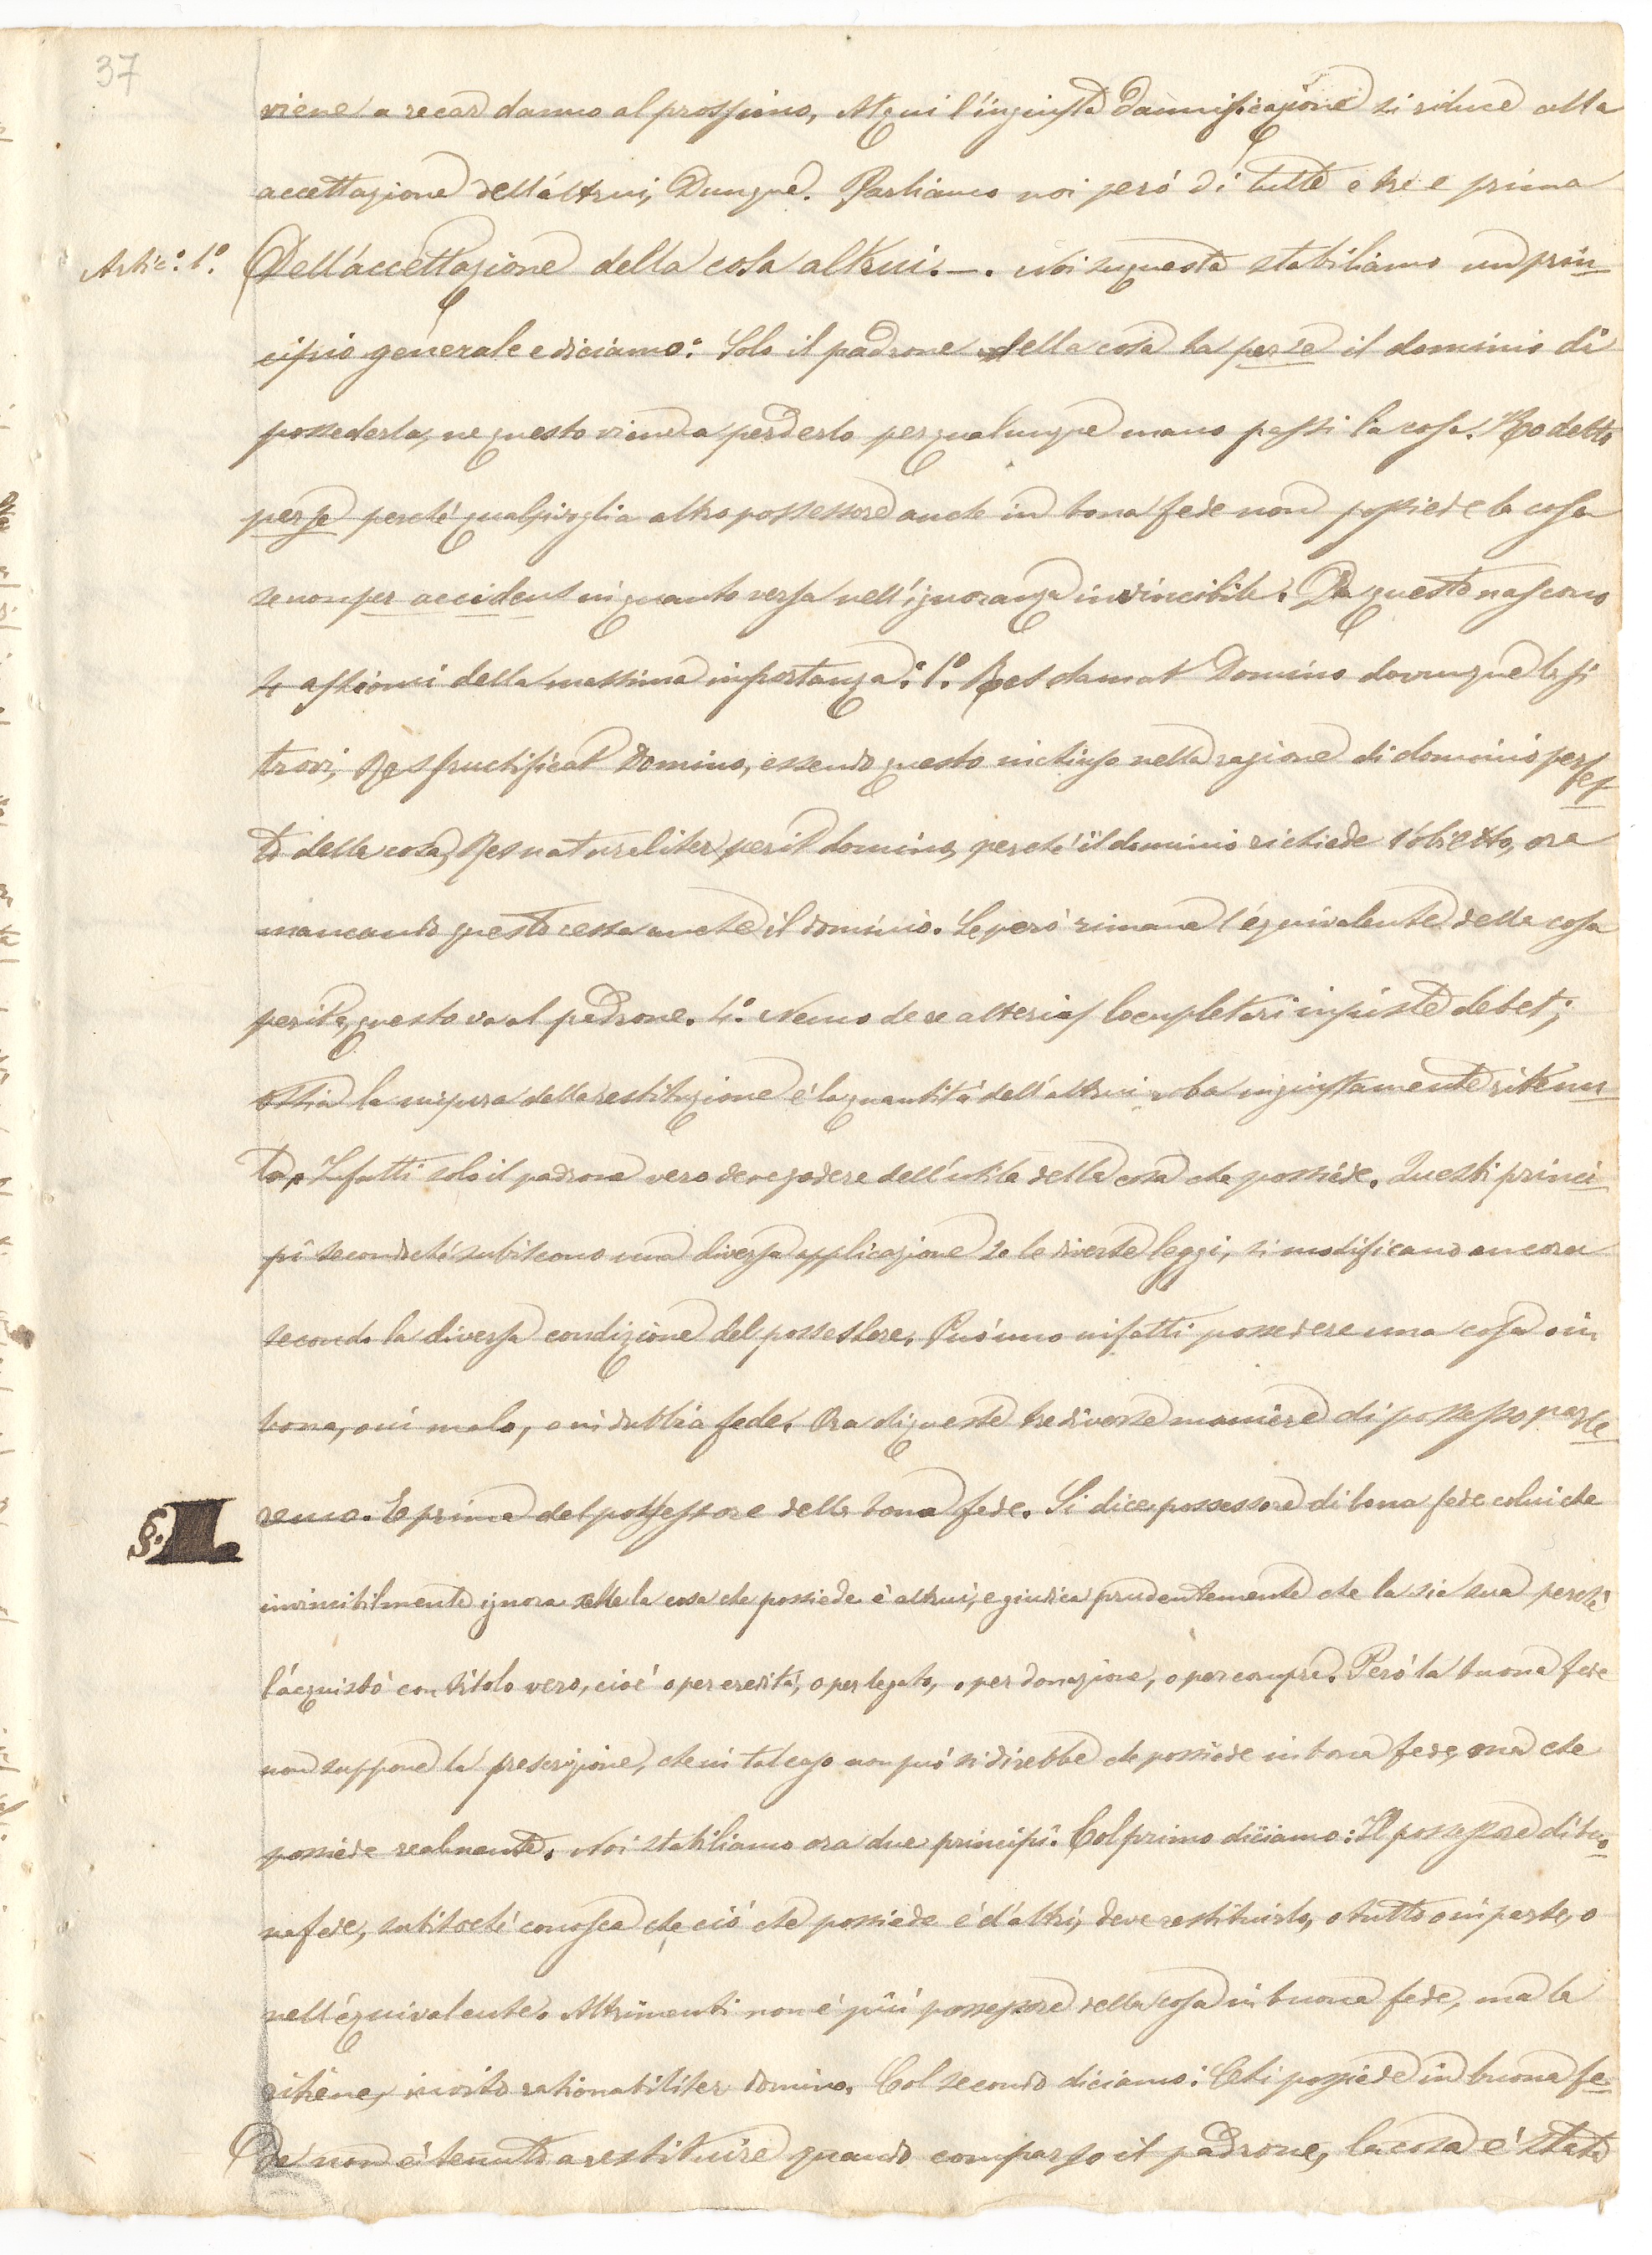 37
viene a recar danno al prossimo, Atqui l'ingiusta dannificazione si riduce alla
accettazione dell'altrui, Dunque. Parliamo noi però di tutte e tre e prima
Artic.º 1º. Dell'accettazione della cosa altrui. —. Noi su questa stabiliamo un prin
cipio generale e diciamo: Solo il padrone della cosa ha per se il dominio di
possederla, ne questo viene a perderlo per qualunque mano passi la cosa. Ho detto
per se perché qualsivoglia altro possessore anche in bona fede non possiede la cosa
se non per accidens in quanto versa nell'ignoranza invincibile. Da questo nascono
4 assiomi della massima importanza: 1º. Res clamat Domino dovunque la si
trovi, Res fructificat Domino, essendo questo inchiuso nella ragione di dominio perfet
to della cosa, Res naturaliter perit domino, perché il dominio richiede l'obietto, ora
mancando questo cessa anche il dominio. Se però rimane l'equivalente della cosa
perita, questo va al padrone. 4º. Nemo de re alterius locupletari injuste debet;
ossia la misura della restituzione é la quantità dell'altrui roba ingiustamente ritenu
ta. Infatti solo il padrone vero deve godere dell'utile della cosa che possiede. Questi princi
pî secondoché subiscono una diversa applicazione se le diverse leggi, si modificano ancora
secondo la diversa condizione del possessore. Può uno infatti possedere una cosa o in
bona, o in mala, o in dubbia fede. Ora di queste tre diverse maniere di possesso parle
§. I. remo. E prima del possessore della bona fede. Si dice possessore di bona fede colui che
invincibilmente ignora che la cosa che possiede è altrui, e giudica prudentemente che la sia sua perché
l'acquistò con titolo vero, cioè o per eredità, o per legato, o per donazione, o per compra. Però la buona fede
non suppone la prescrizione, che in tal caso non più si direbbe che possiede in bona fede, ma che
possiede realmente. Noi stabiliamo ora due principî. Col primo diciamo: Il possessore di buo
na fede, subitoché conosca che ciò che possiede é d'altri, deve restituirlo, o tutto o in parte, o
nell'equivalente. Altrimenti non é più possessore della cosa in buona fede, ma la
ritiene, invito rationabiliter domino. Col secondo diciamo: Chi possiede in buona fe
de non é tenuto a restituire quando comparso il padrone, la cosa é stata